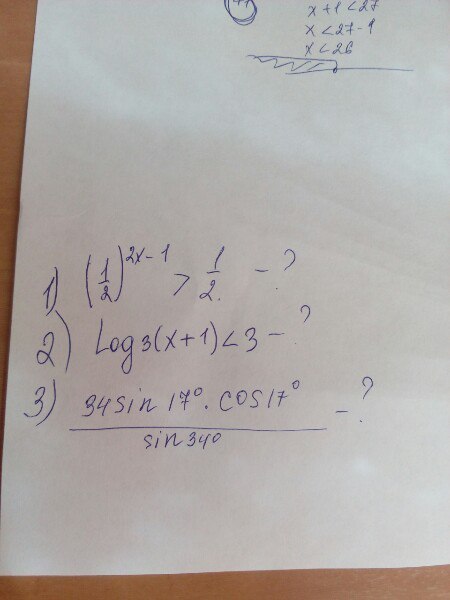 x+1<27
x<27-1
x<26
1) (1/2)^2x-1 > 1/2. - ?
2) Log3(x+1)<3 - ?
3) 34sin 17°. cos17° - ?
sin 34°